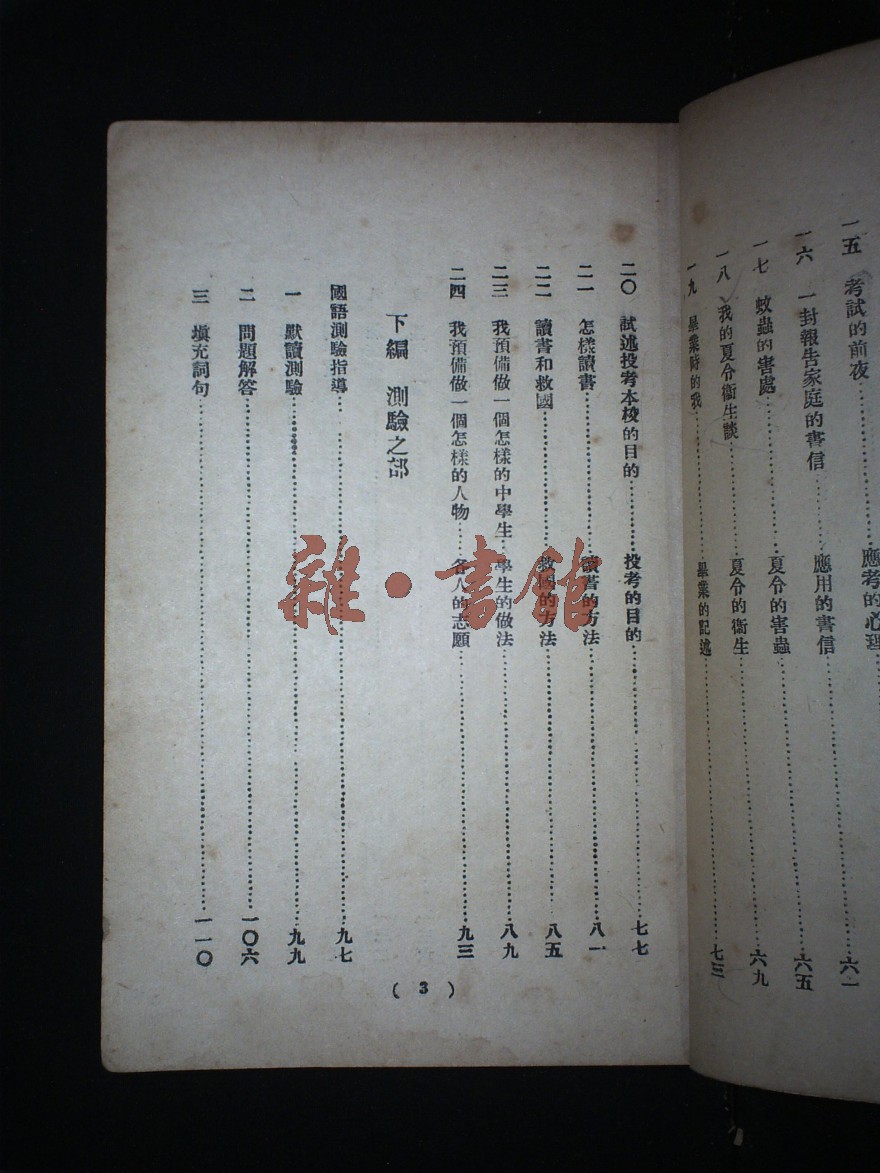 一五 考試的前夜……應考的心理……六一
一六 一封報告家庭的書信……應用的書信……六五
一七 蚊蟲的害處……夏令的害蟲……六九
一八 我的夏令衞生談……夏令的衞生……七三
一九 畢業時的我……畢業的記述
二〇 試述投考本校的目的……投考的目的……七七
二一 怎樣讀書……讀書的方法……八一
二二 讀書和救國……救國的方法……八五
二三 我預備做一個怎樣的中學生……學生的做法……八九
二四 我預備做一個怎樣的人物……各人的志願……九三
下編 測驗之部
國語測驗指導……九七
一 默讀測驗……九九
二 問題解答……一〇六
三 填充詞句……一一〇
( 3 )
雜·書館